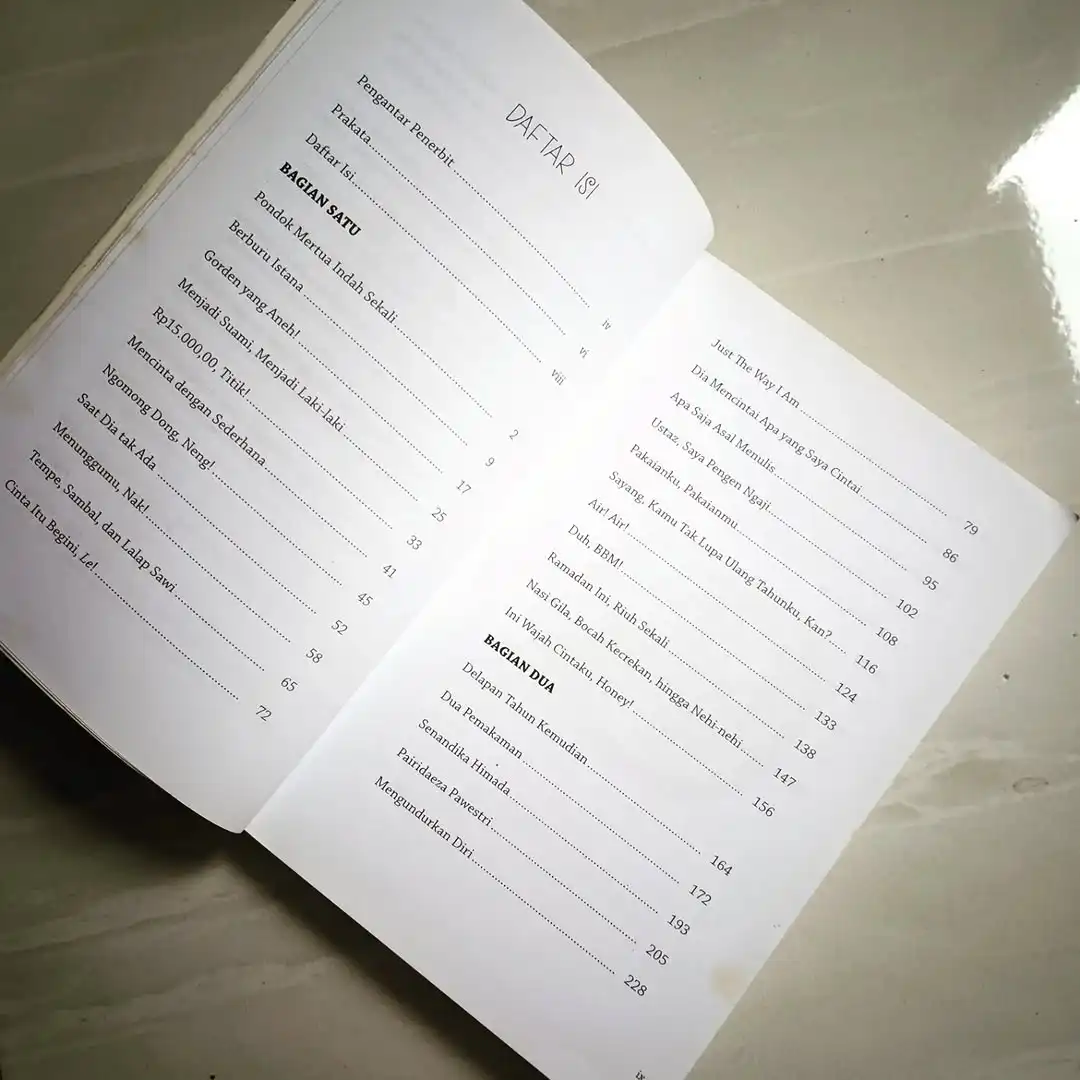 DAFTAR ISI
Pengantar Penerbit.................... iv
Prakata.................... vi
Daftar Isi.................... viii
BAGIAN SATU
Pondok Mertua Indah Sekali.................... 2
Berburu Istana.................... 9
Gorden yang Aneh!.................... 17
Menjadi Suami, Menjadi Laki-laki.................... 25
Rp15.000,00, Titik!.................... 33
Mencinta dengan Sederhana.................... 41
Ngomong Dong, Neng!.................... 45
Saat Dia tak Ada.................... 52
Menunggumu, Nak!.................... 58
Tempe, Sambal, dan Lalap Sawi.................... 65
Cinta Itu Begini, Le!.................... 72
Just The Way I Am.................... 79
Dia Mencintai Apa yang Saya Cintai.................... 86
Apa Saja Asal Menulis.................... 95
Ustaz, Saya Pengen Ngaji.................... 102
Pakaianku, Pakaianmu.................... 108
Sayang, Kamu Tak Lupa Ulang Tahunku, Kan?.... 116
Air! Air!.................... 124
Duh, BBM!.................... 133
Ramadan Ini, Riuh Sekali.................... 138
Nasi Gila, Bocah Kecrekan, hingga Nehi-nehi.... 147
Ini Wajah Cintaku, Honey!.................... 156
BAGIAN DUA
Delapan Tahun Kemudian.................... 164
Dua Pemakaman.................... 172
Senandika Himada.................... 193
Pairidaeza Pawestri.................... 205
Mengundurkan Diri.................... 228
ix